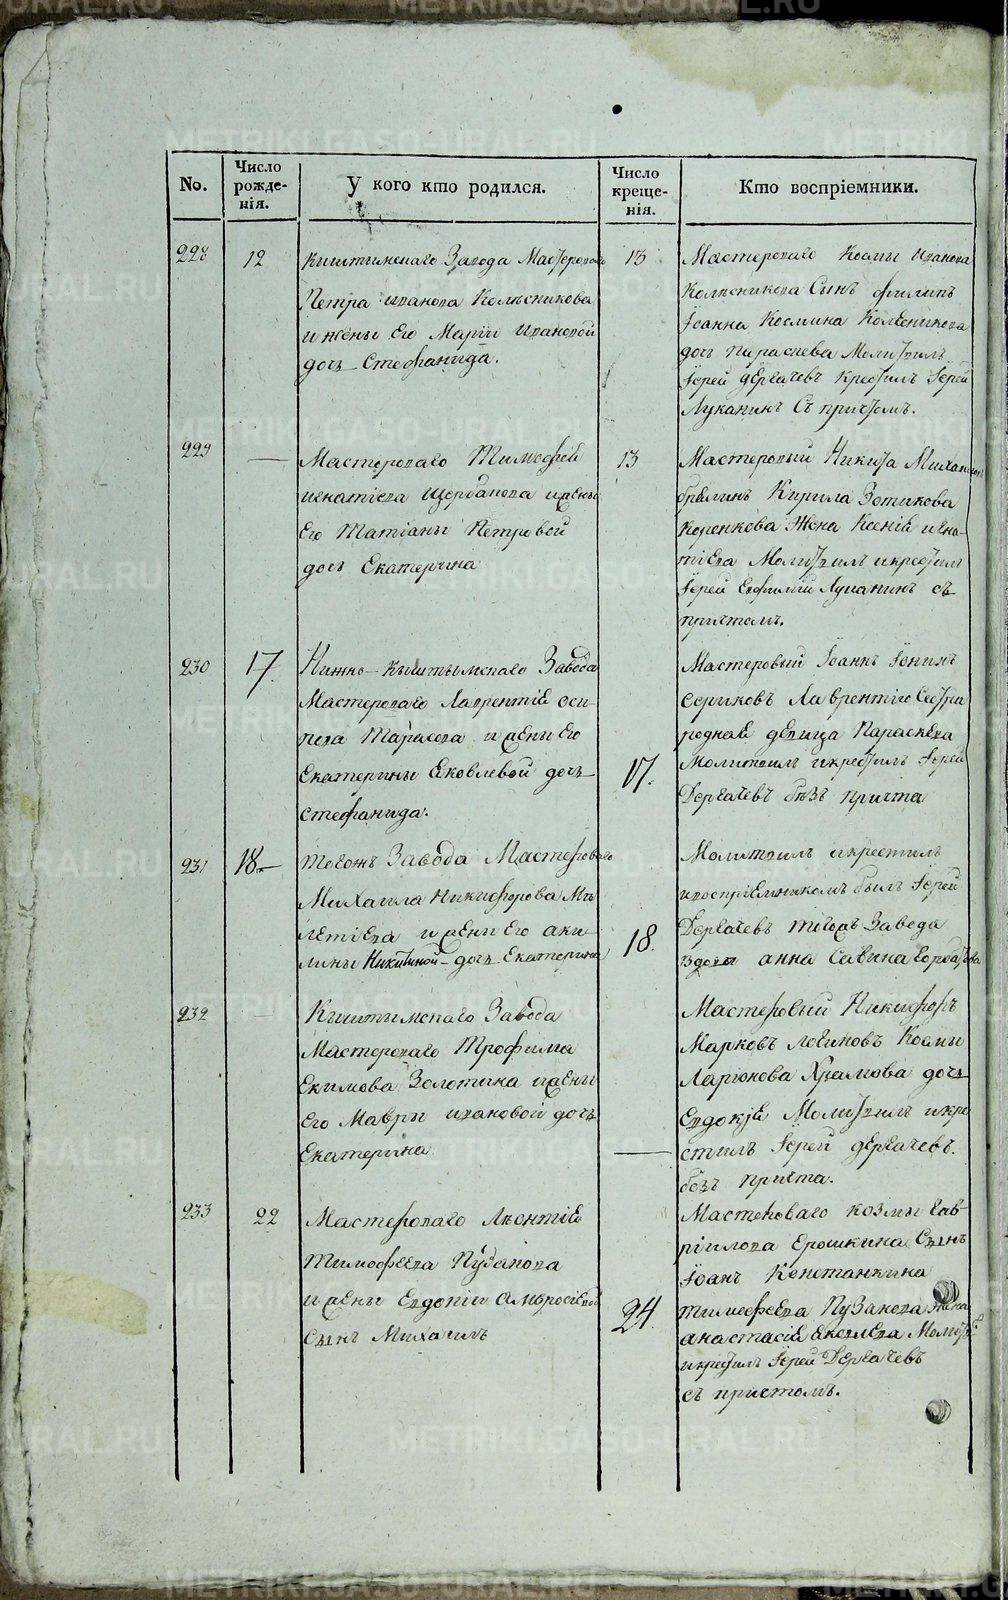 METRIKI.GASO-URAL.RU
No.
Число рожде-нія.
У кого кто родился.
Число креще-нія.
Кто воспріемники.
228
12
Киштымскаго Завода Мастероваго
Петра иванова Колѣсникова
и жены Его Маріи ивановой
дочь Стефанида.
13
Мастероваго Космы иванова
Колѣсникова Сынъ филипъ
Іоанна Космина Колесникова
дочь параскева Молитвилъ
Іерей дергачевъ крестилъ Іерей
Луканинъ Съ причтомъ.
229
—
Мастероваго Тимофей
игнатіева Щербакова и жены
Его Татіаны Петровой
дочь Екатерина
13
Мастеровый Никита
Кирила Зотикова
жена Ксенія игна-
тіева Молитвилъ и крестилъ
Іерей Евфимій Луканинъ съ
причтомъ.
230
17
Нижно-Кыштымскаго Завода
Мастероваго Лаврентія оси-
пова Тарасова и жены Его
Екатерины Яковлевой дочь
стефанида.
17.
Мастеровый Іоаннъ
Лаврентію Сестра
родная девица Параскева
Молитвилъ и крестилъ Іерей
Дергачевъ безъ причта
231
18—
тогожъ Завода Мастероваго
Михаила Никифорова Мѣ
летіева и жены Его аки-
лины Никитиной дочь Екатерина
18.
Молитвилъ и крестилъ
и воспріемникомъ былъ Іерей
Дергачевъ тогожъ Завода
вдова анна Савина
232
—
Кыштымскаго Завода
Мастероваго Трофима
Екимова Золотина и жены
Его Мавры ивановой дочь
Екатерина
—
Мастеровый Никифоръ
Марковъ логиновъ Космы
Ларионова Храмова дочь
Евдокія Молитвилъ и кре
стилъ Іерей дергачевъ.
безъ причта.
233
22
Мастероваго Леонтія
Тимофеева Пузанова
и жены Евдокіи Амвросіевой
Сынъ Михаилъ
24.
Мастероваго козмы гав-
рилова Ерошкина Сынъ
Іоанъ Констанкина
тимофеева Пузанова жена
анастасія Молитв
и крестилъ Іерей Дергачевъ
съ причтомъ.